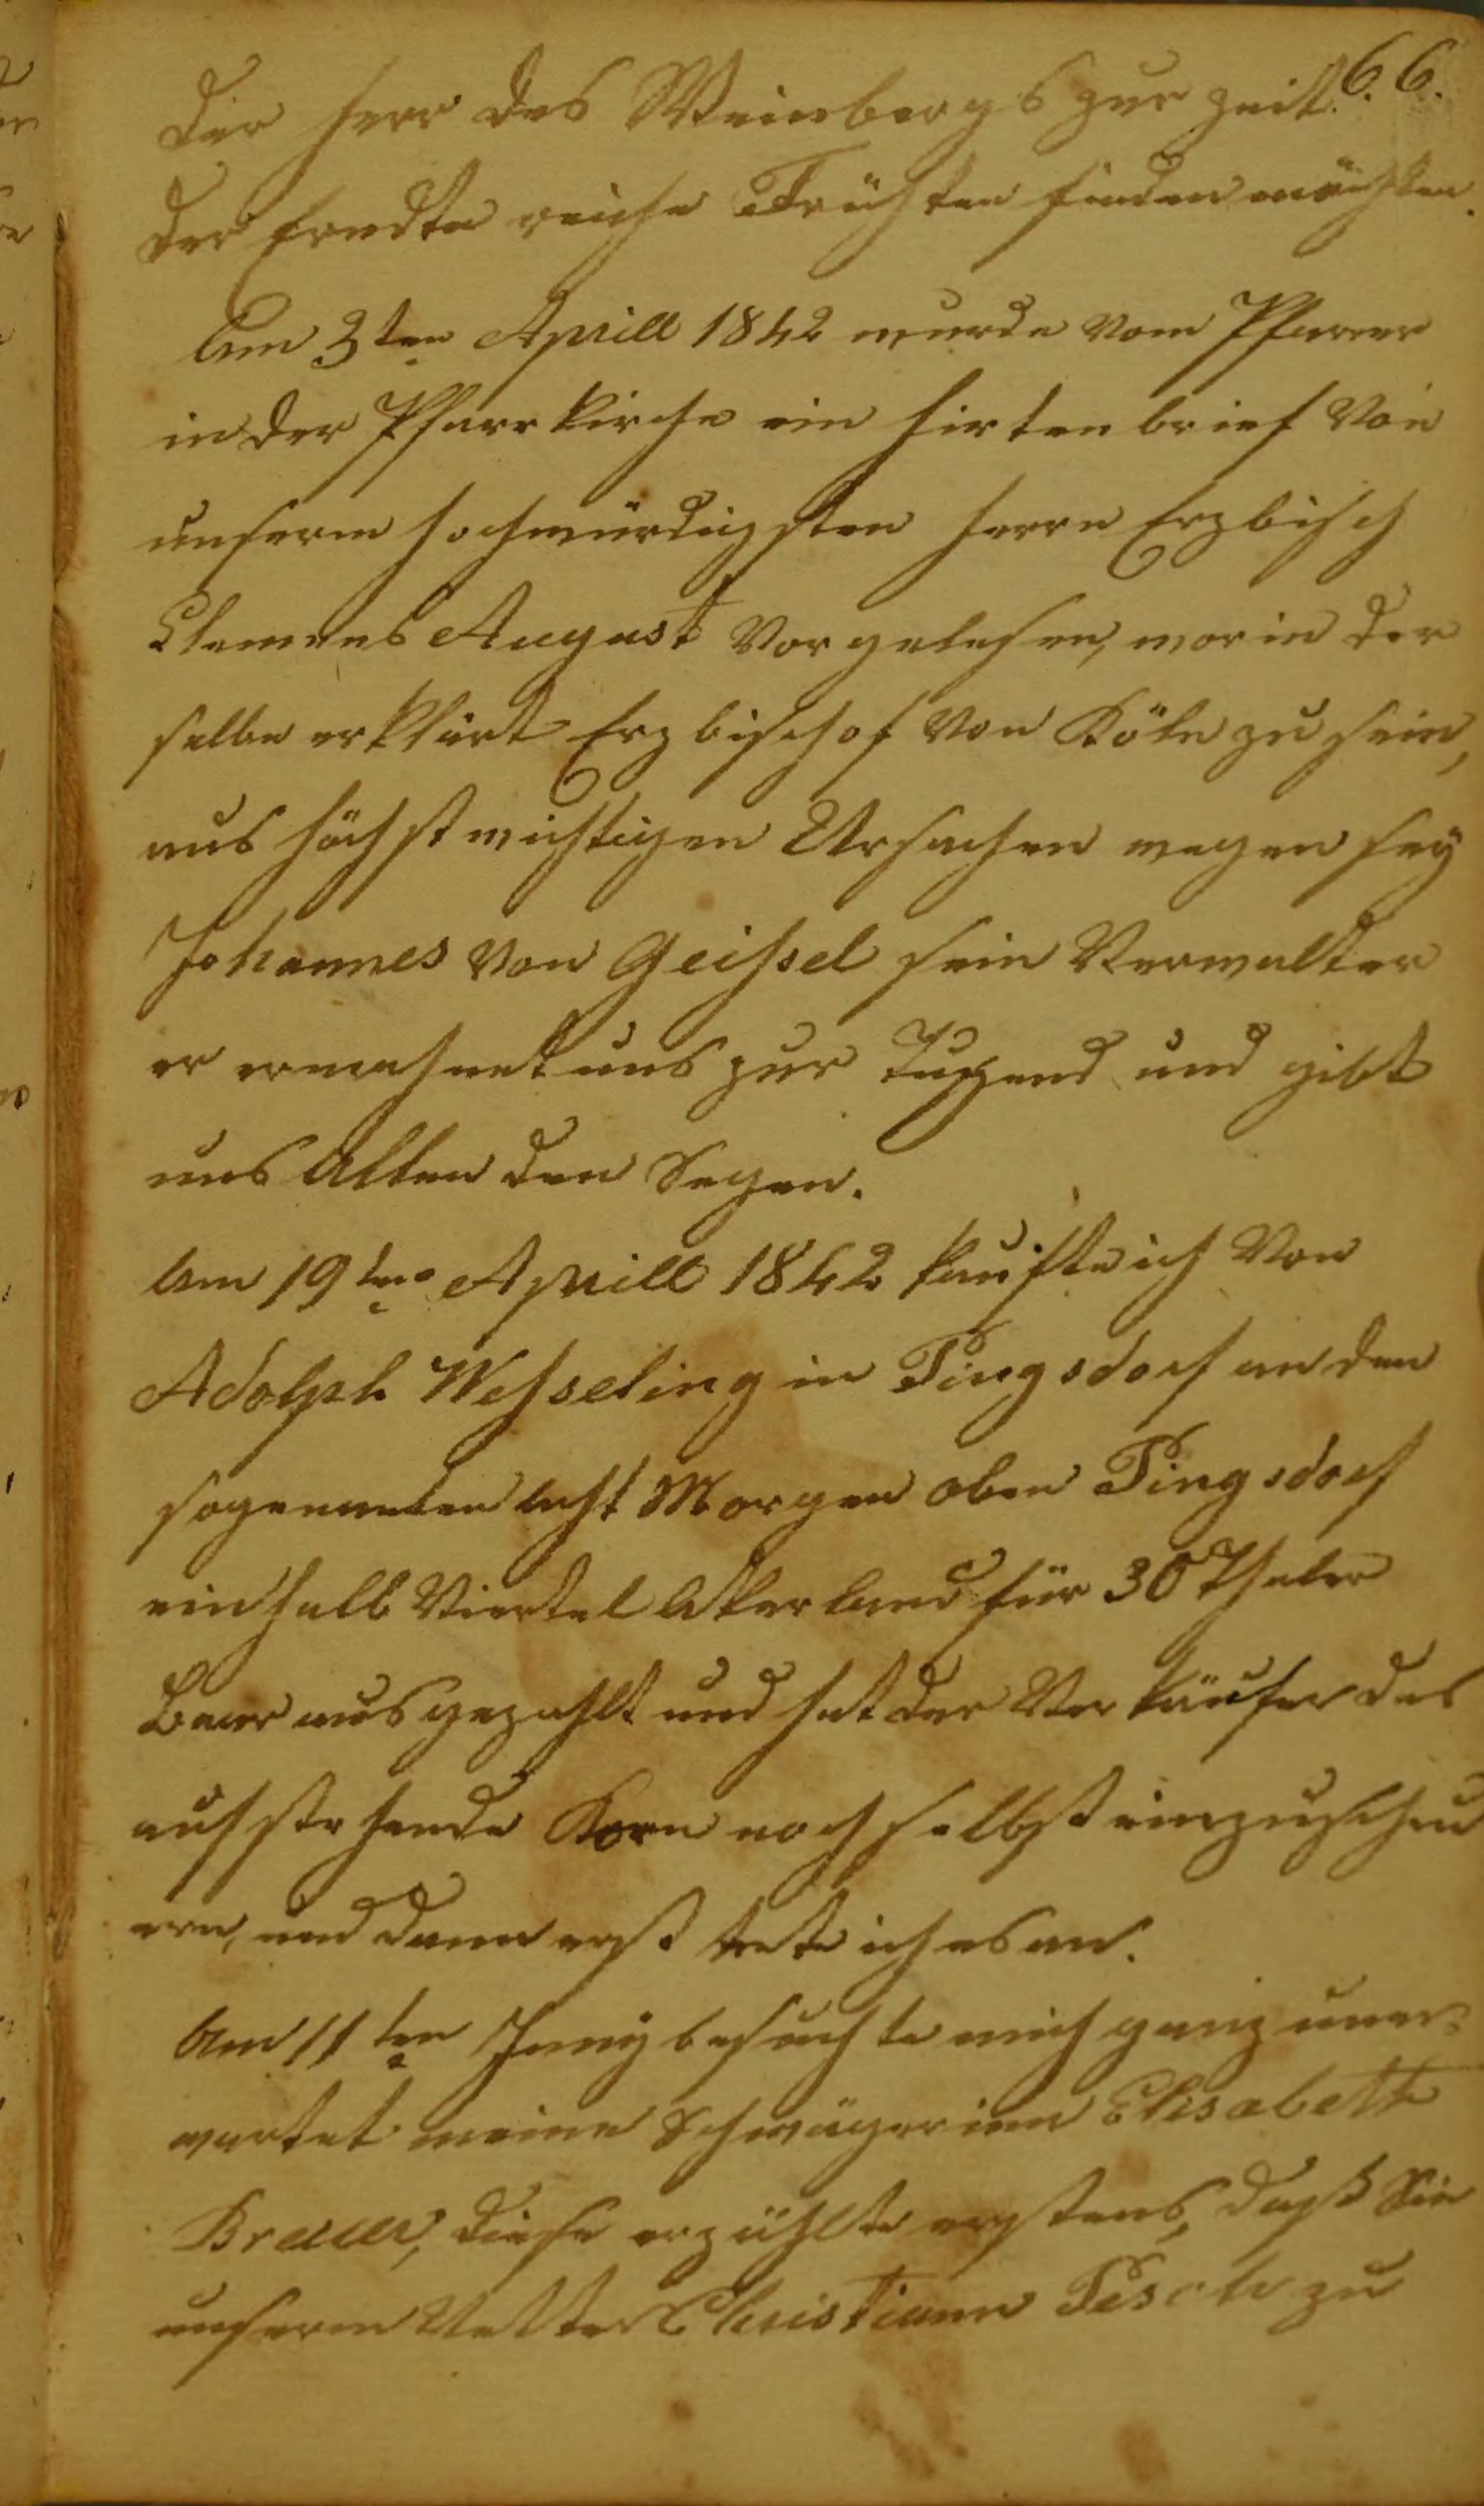 66.
der Herr des Weinbergs zur zeit
der Erndte reiche Früchten finden möchten.
Am 3ten Aprill 1842 wurde vom Pfarrer
in der Pfarrkirche ein Hirtenbrief von
unserm hochwürdigsten Herrn Erzbisch
Clemens August vorgelesen, worin der
selbe erklärt Erzbischof von Köln zu sein,
aus höchst wichtigen Ursachen wegen sey
Johannes von Geißel sein Verwalter
er ermahnet uns zur Tugend und gibt
uns Allen den Segen.
Am 19ten Aprill 1842 kaufte ich von
Adolph Weßseling in Pingsdorf an den
sogenanten Acht Morgen oben Pingsdorf
ein halb Viertel Akerland für 30 Thaler
Baar ausgezahlt und hat der Verkäufer das
aufstehende Korn noch selbst einzuscheu
ern, und dann erst trete ich es an.
Am 11ten Juny besuchte mich ganz uner=
wartet meine Schwägerinn Elisabeth
Breuer, diese erzählte erstens, daß Sie
unserm Vetter Christiann Pesch zu